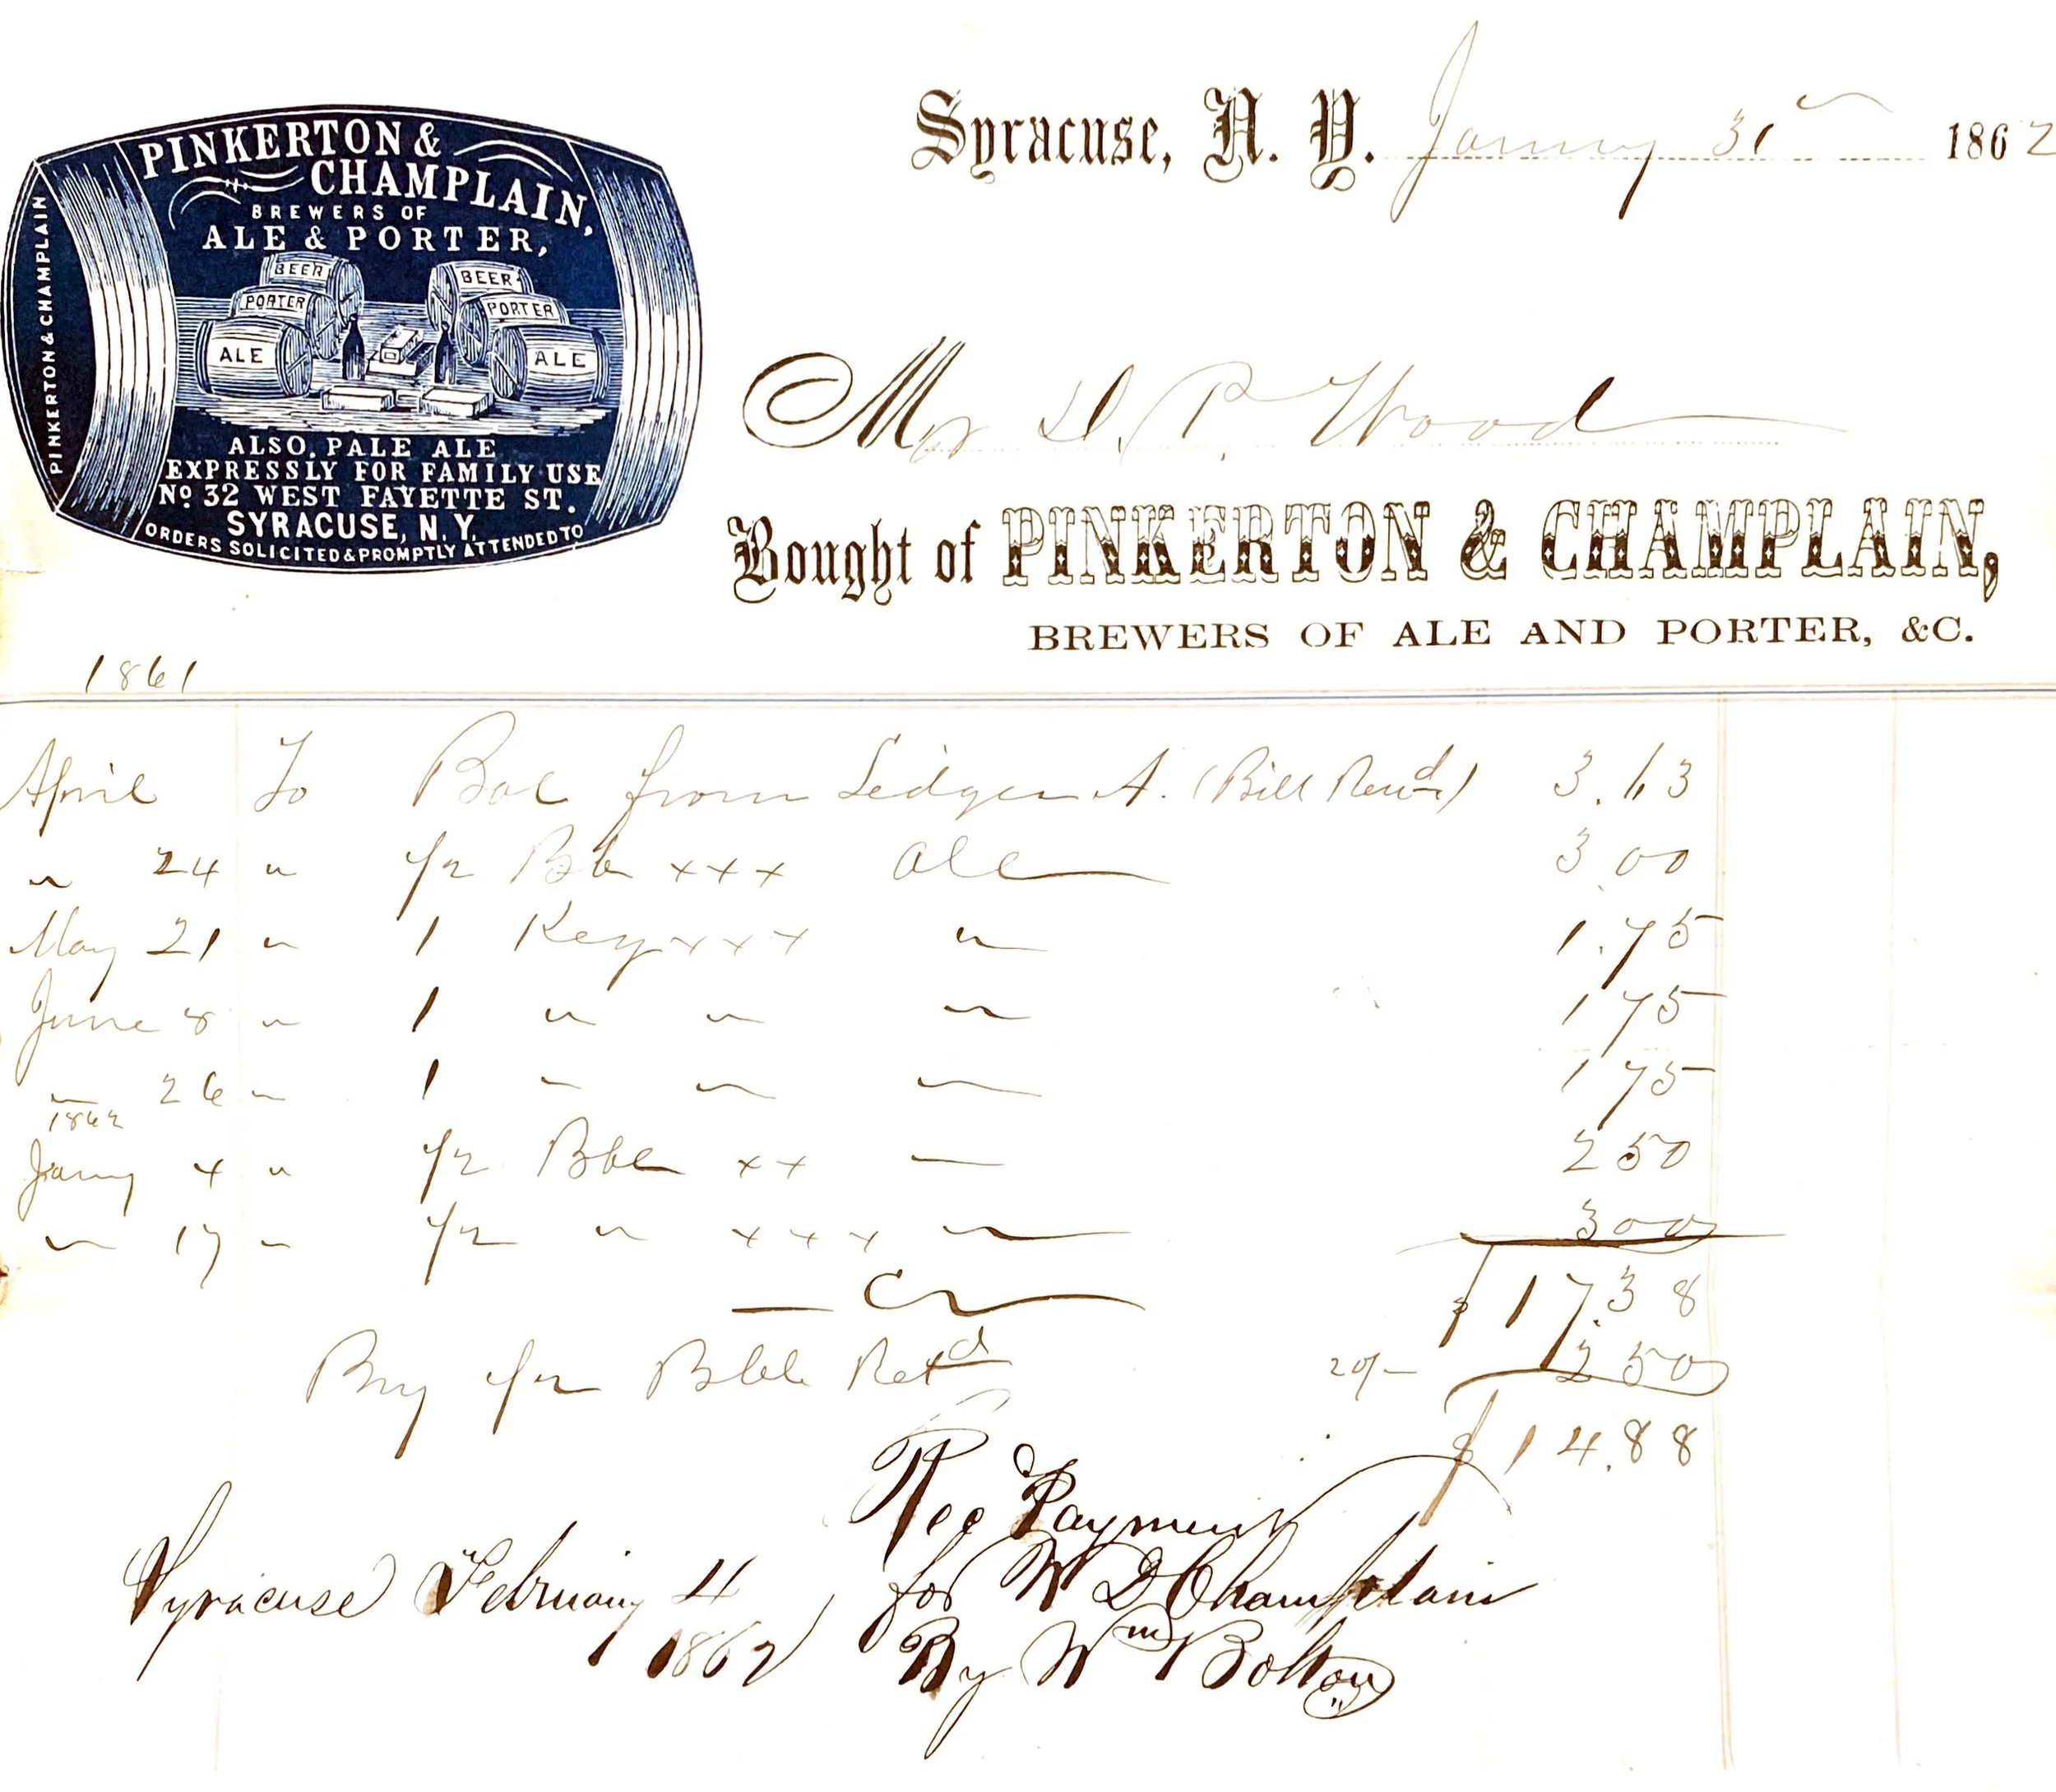 PINKERTON &
CHAMPLAIN,
BREWERS OF
ALE & PORTER,
BEER BEER
PORTER PORTER
ALE ALE
ALSO, PALE ALE
EXPRESSLY FOR FAMILY USE
No 32 WEST FAYETTE ST.
SYRACUSE, N.Y.
ORDERS SOLICITED & PROMPTLY ATTENDED TO
PINKERTON & CHAMPLAIN
Syracuse, N. Y. Janny 31 1862
Mr D. P. Wood
Bought of PINKERTON & CHAMPLAIN,
BREWERS OF ALE AND PORTER, &C.
1861
April To Bal from Ledger A. (Bill Rend) 3.63
" 24 " 1/2 Bbl xxx Ale 3.00
May 21 " 1 Keg xxx " 1.75
June 8 " 1 " " " 1 75
" 26 " 1 " " " 1 75
1862
Janny 4 " 1/2 Bbl xx " 2 50
" 17 " 1/2 " xxx " 3 00
Cr $17.38
By 1/2 Bbl Retd 20/- 2 50
$14.88
Rec Payment
Syracuse February 4 for W D Champlain
1862 By Wm Bolton